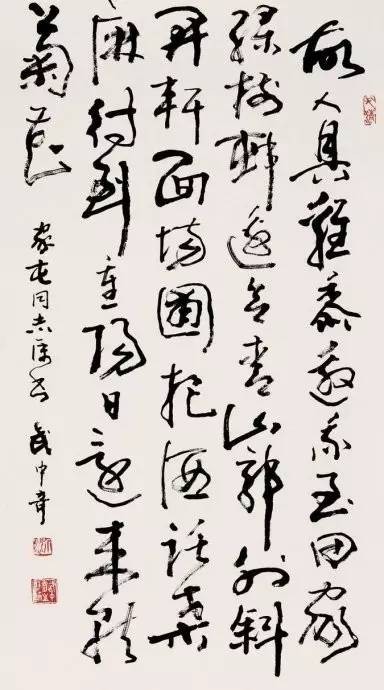 故人具雞黍邀我至田家
綠樹邨邊合青山郭外斜
開軒面場圃把酒話桑
麻待到重陽日還來就
菊花
家屯同志屬 武中奇